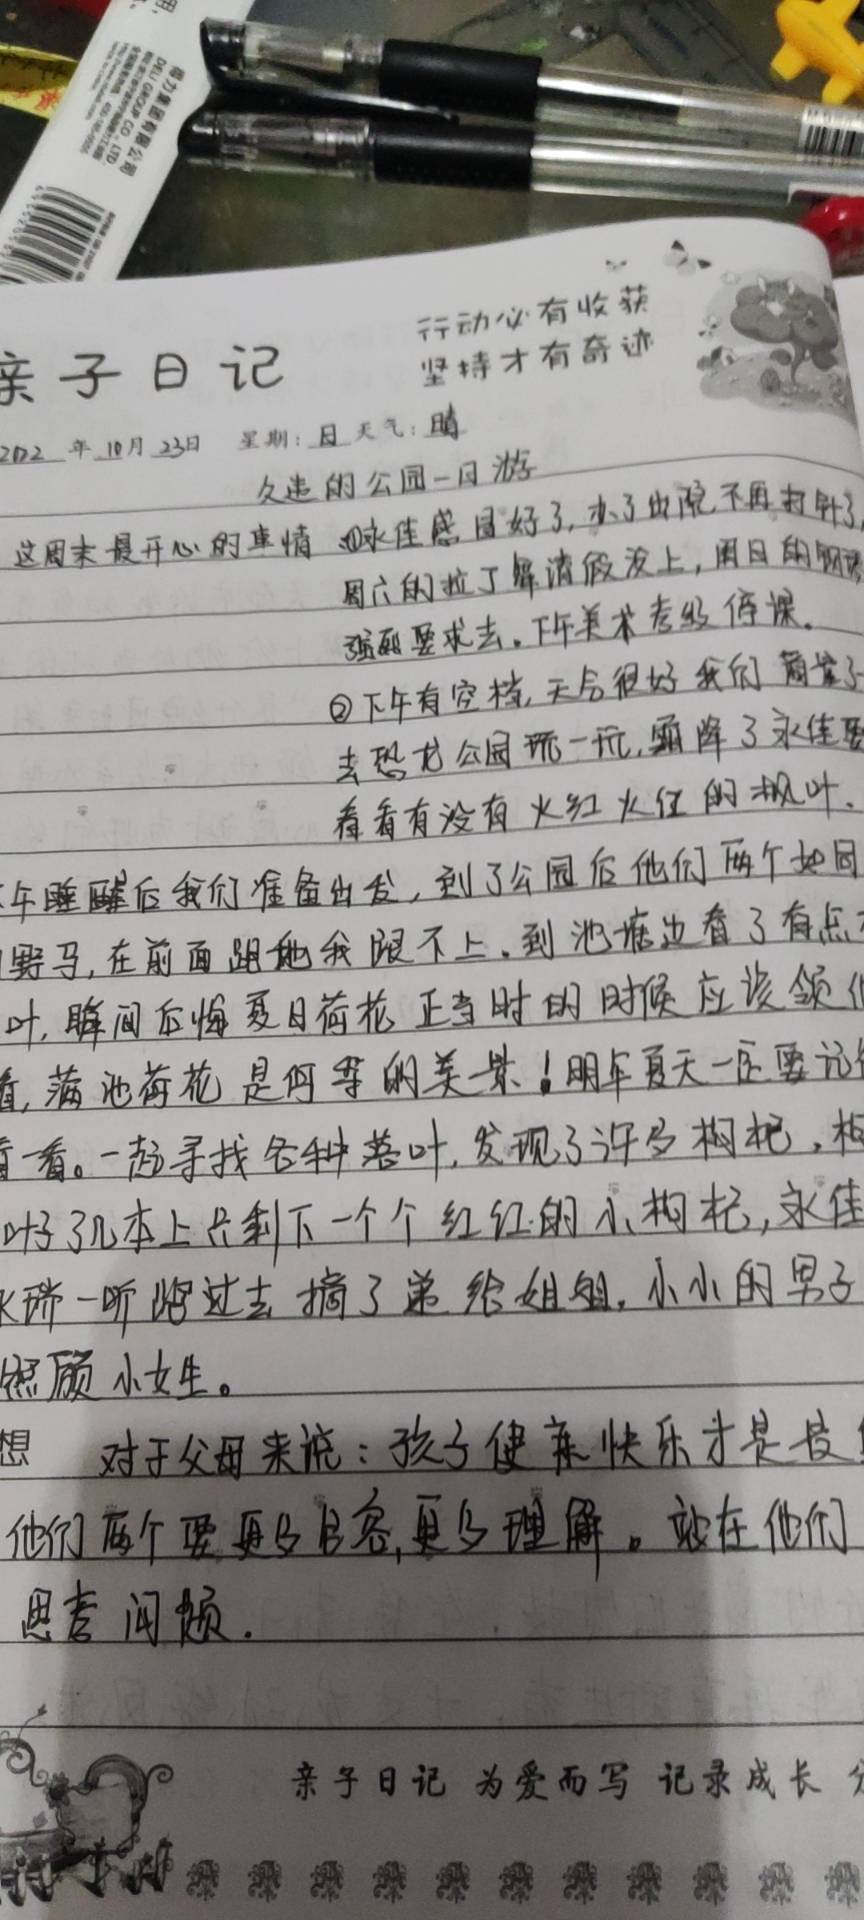 得力集团有限公司
DELI GROUP CO., LTD.
行动必有收获
坚持才有奇迹
亲子日记
2022年10月23日 星期:日 天气:晴
久违的公园一日游
这周末最开心的事情 ①永佳感冒好了,办了出院,不再打针了,
周六的拉丁舞请假没上,周日的钢琴
强烈要求去。下午美术考级停课。
②下午有空档,天气很好我们
去恐龙公园玩一玩,霜降了永佳要
看看有没有火红火红的枫叶.
午睡醒后我们准备出发,到了公园后他们两个如同
野马,在前面跑地我跟不上.到池塘边看了有点
叶,瞬间后悔夏日荷花正当时的时候应该领他
看,满池荷花是何等的美景!明年夏天一定要记
看一看。一起寻找各种落叶,发现了许多枸杞,枸
叶子几本上只剩下一个个红红的小枸杞,永佳
永瑞一听跑过去摘了递给姐姐,小小的男子
照顾小女生。
想 对于父母来说:孩子健康快乐才是最
他们两个要更多包容,更多理解。站在他们
思考问题.
亲子日记 为爱而写 记录成长